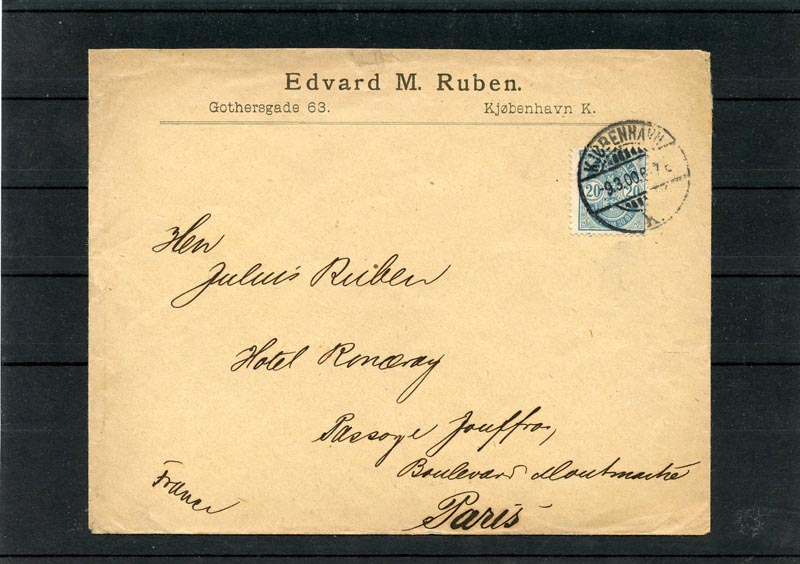 Edvard M. Ruben.
Gothersgade 63. Kjøbenhavn K.
KJØBENHAVN
9.3.00.
K.
20 20
Herr
Julius Ruben
Hotel Ronceray
Passage Jouffroy,
Boulevard Montmartre
France
Paris